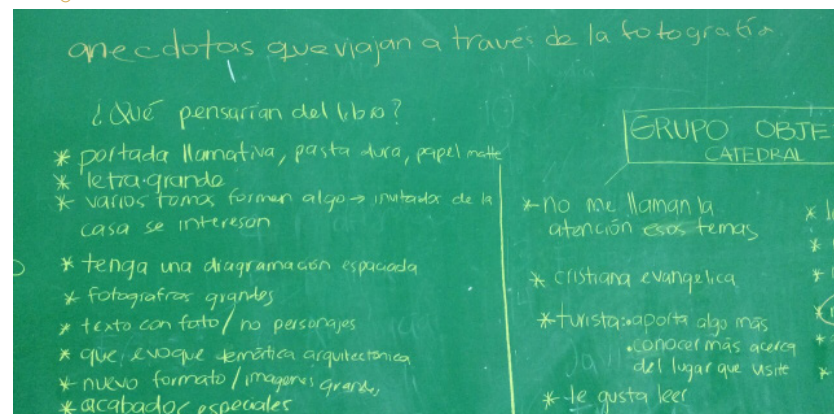 anecdotas que viajan a través de la fotografía
¿Qué pensarian del libro?
* portada llamativa, pasta dura, papel matte
* letra grande
* varios tomos formen algo → invitados de la
casa se interesan
* tenga una diagramación espaciada
* fotografías grandes
* texto con foto / no personajes
* que evoque temática arquitectónica
* nuevo formato / imagenes grandes
* acabados especiales
GRUPO OBJE
CATEDRAL
* no me llaman la
atención esos temas
* cristiana evangelica
* turista: • aporta algo más
• conocer más acerca
del lugar que visite
* le gusta leer